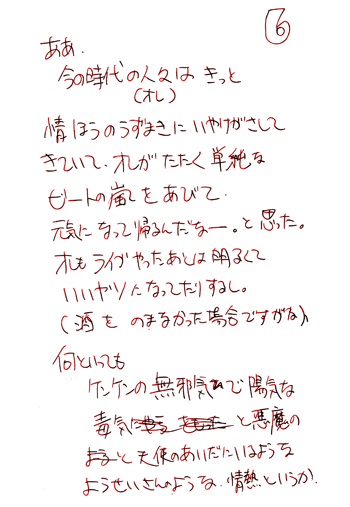 6
ああ、
今の時代の人々は きっと
(オレ)
情ほうのうずまきに いやけがさして
きていて、オレがたたく単純な
ビートの嵐をあびて、
元気になって帰るんだなー。と思った。
オレもライヴやったあとは明るくて
いいヤツになってたりするし。
(酒を のまなかった場合ですがな)
何といっても
ケンケンの無邪気で陽気な
毒気 と悪魔の
と天使のあいだにいるような
ようせいさんのような、情熱というか、